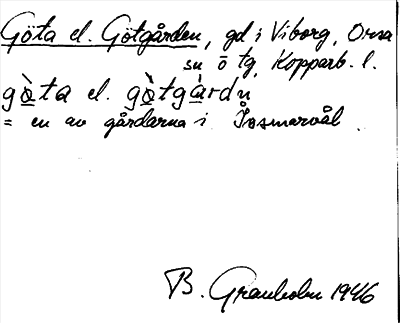 Göta el. Götgården, gd i Viborg, Orsa
sn ö tg, Kopparb. l.
gò̱ta el. gò̱tgà̱rdn
= en av gårdarna i
B. Granholm 1946